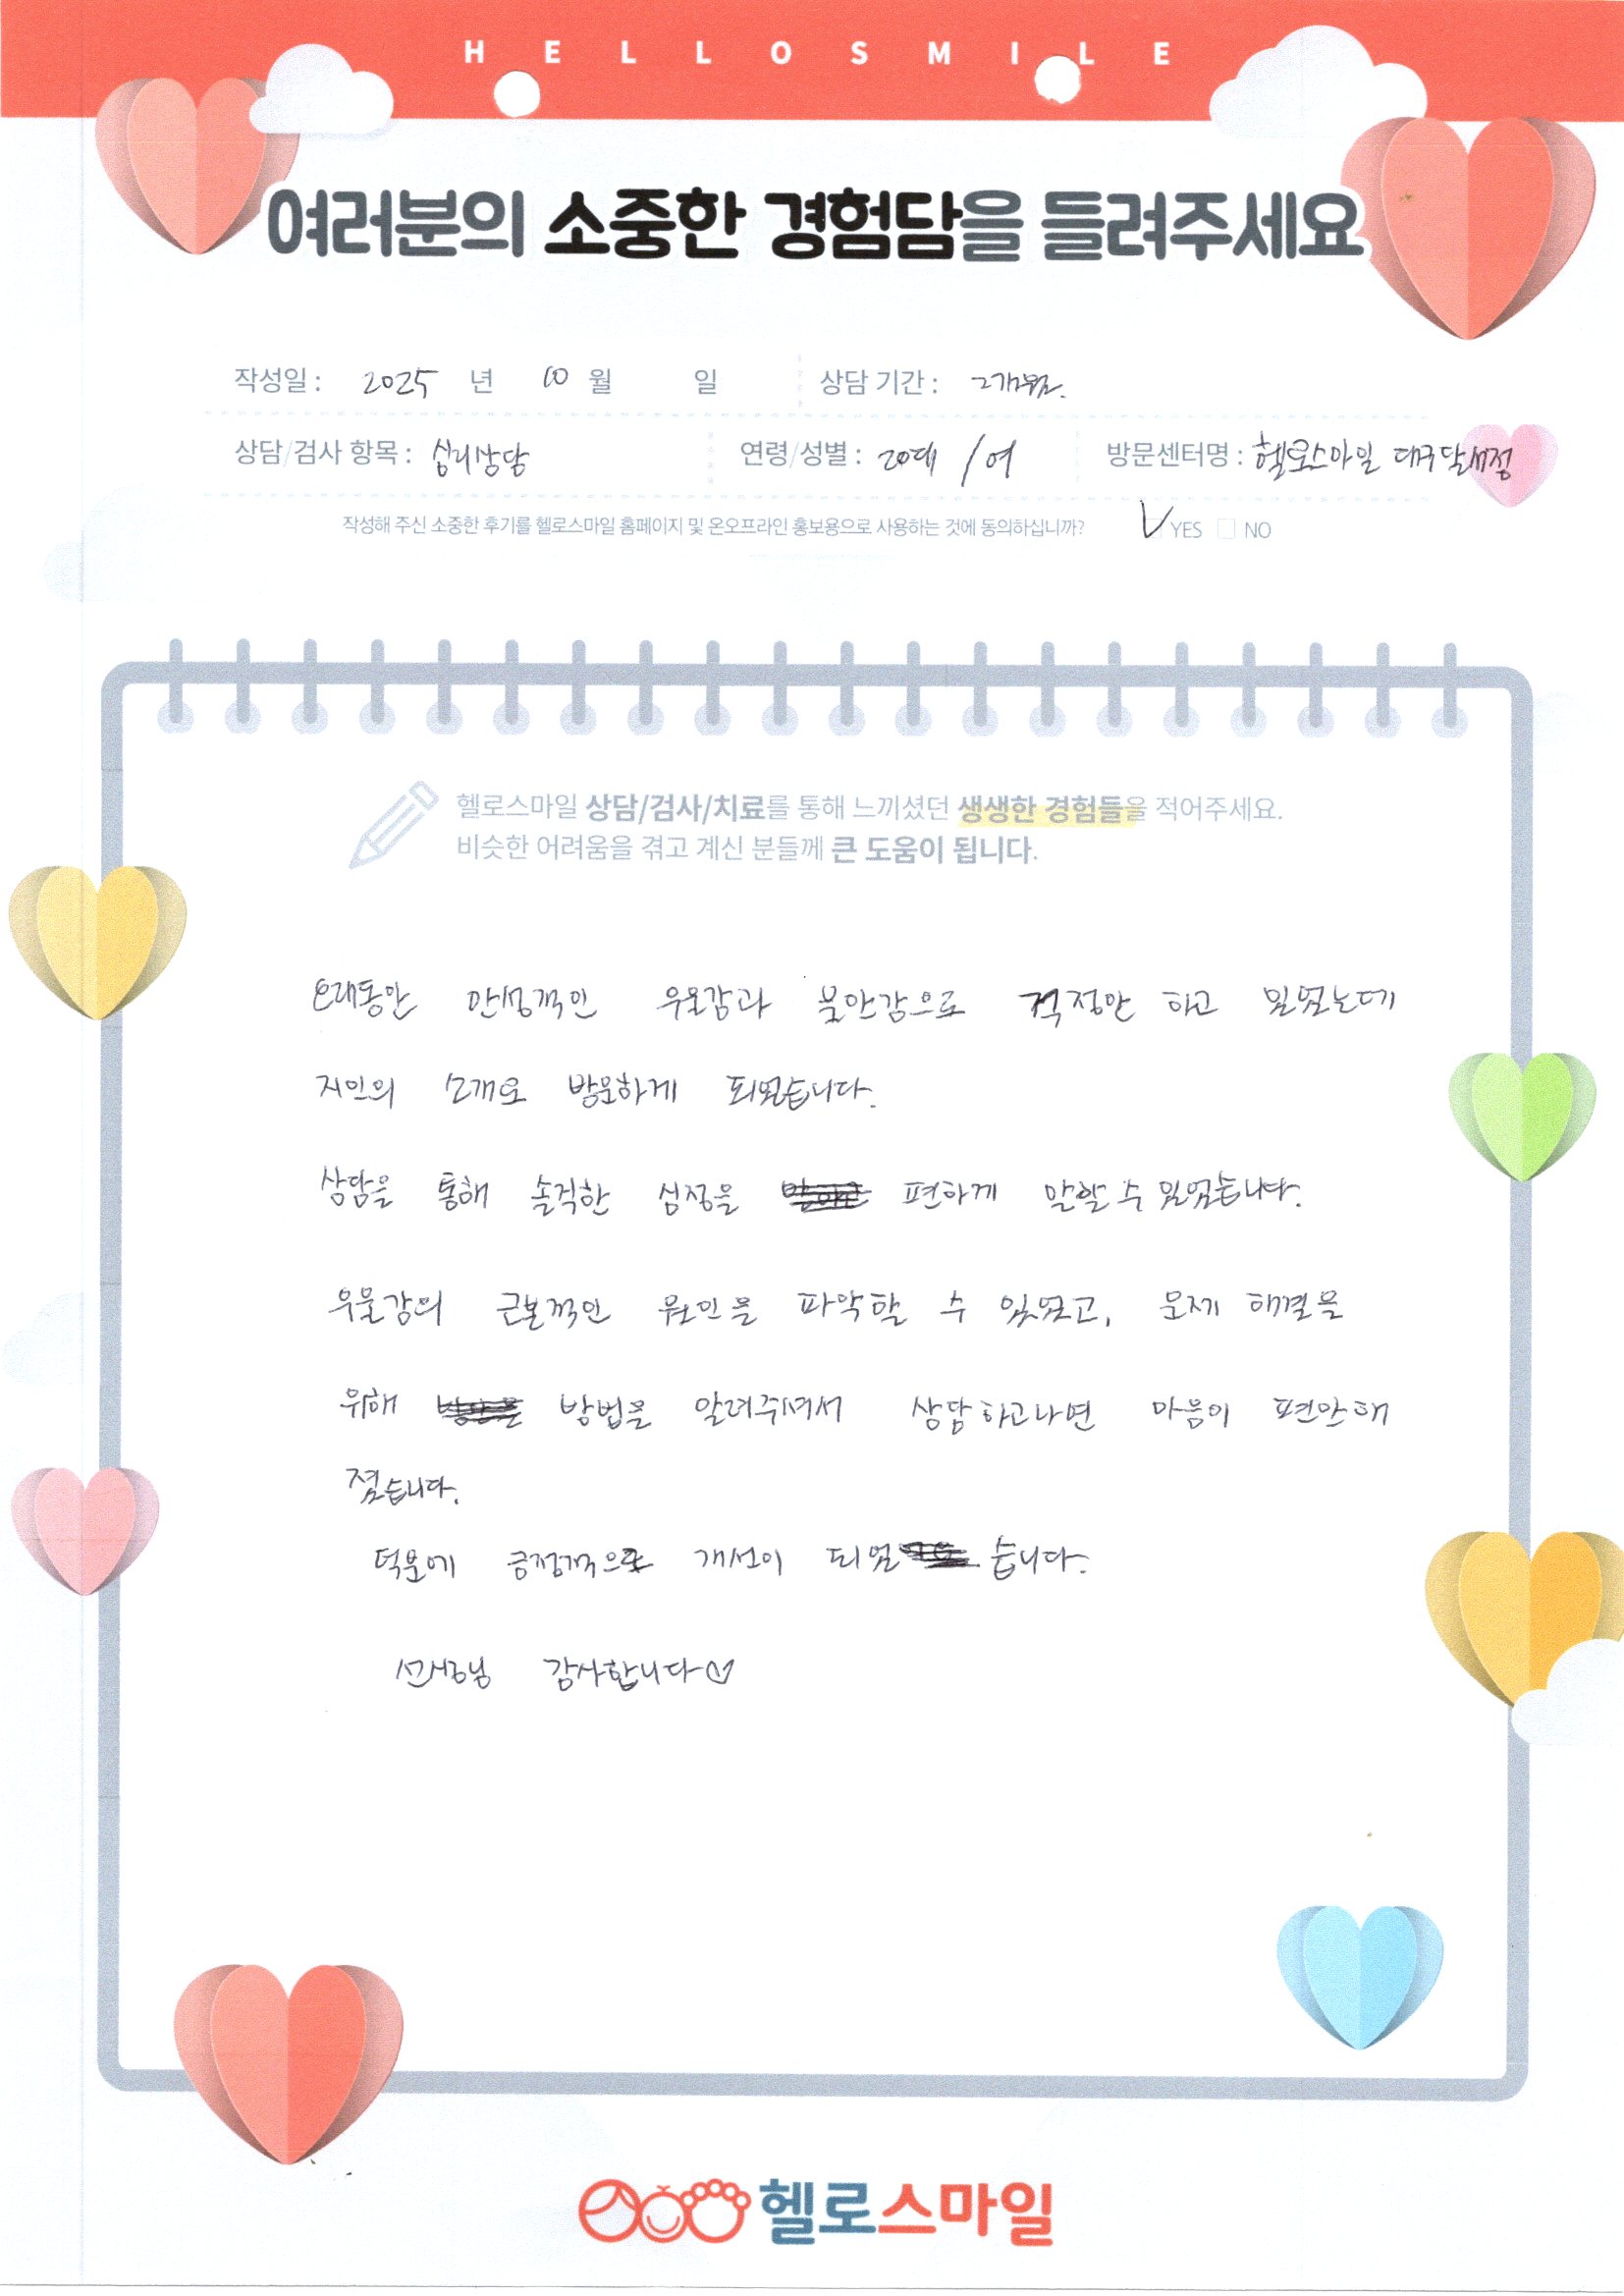 HELLOSMILE
여러분의 소중한 경험담을 들려주세요
작성일 : 2025 년 10 월 일 상담 기간 : 2개월.
상담/검사 항목 : 심리상담 연령/성별 : 20대 / 여 방문센터명 : 헬로스마일 대구달서점
작성해 주신 소중한 후기를 헬로스마일 홈페이지 및 온오프라인 홍보용으로 사용하는 것에 동의하십니까? YES NO
헬로스마일 상담/검사/치료를 통해 느끼셨던 생생한 경험들을 적어주세요.
비슷한 어려움을 겪고 계신 분들께 큰 도움이 됩니다.
오래동안 만성적인 우울감과 불안감으로 걱정만 하고 있었는데
지인의 소개로 방문하게 되었습니다.
상담을 통해 솔직한 심정을 편하게 말할 수 있었습니다.
우울감의 근본적인 원인을 파악할 수 있었고, 문제 해결을
위해 방법을 알려주셔서 상담하고나면 마음이 편안해
졌습니다.
덕분에 긍정적으로 개선이 되었습니다.
선생님 감사합니다♡
헬로스마일